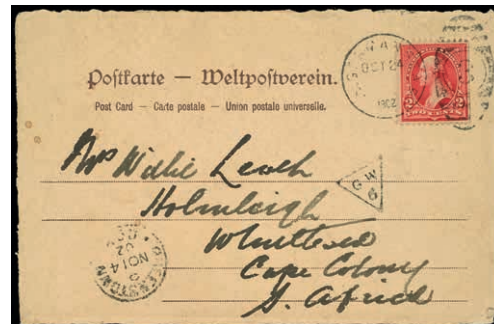 Postkarte — Weltpostverein.
Post Card — Carte postale — Union postale universelle.
OCT 24
1902
2 2
TWO CENTS
Mrs Willie Leach
Holmleigh
Whittlesea
Cape Colony
S. Africa
G W
6
QUEENSTOWN
NO 14
02